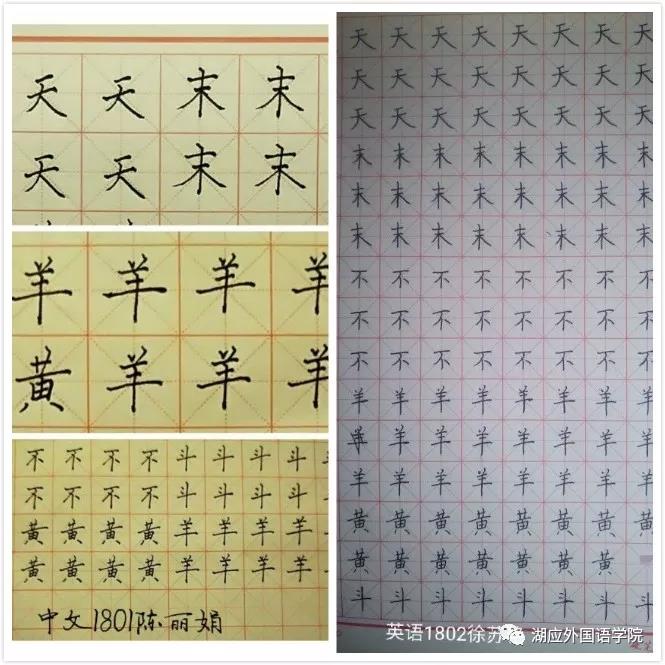 天天末末
天天末末
羊羊羊羊
黄羊羊羊
不不不不斗斗斗斗
不不不不斗斗斗斗
黄黄黄黄羊羊羊羊
黄黄黄黄羊羊羊羊
中文1801陈丽娟
天天天天天天天天
天天天天天天天天
天天天天天天天天
末末末末末末末末
末末末末末末末末
末末末末末末末末
不不不不不不不不
不不不不不不不不
不不不不不不不不
羊羊羊羊羊羊羊羊
羊羊羊羊羊羊羊羊
羊羊羊羊羊羊羊羊
黄黄黄黄黄黄黄黄
黄黄黄黄黄黄黄
斗斗斗斗斗斗斗斗
英语1802徐苏
湖应外国语学院